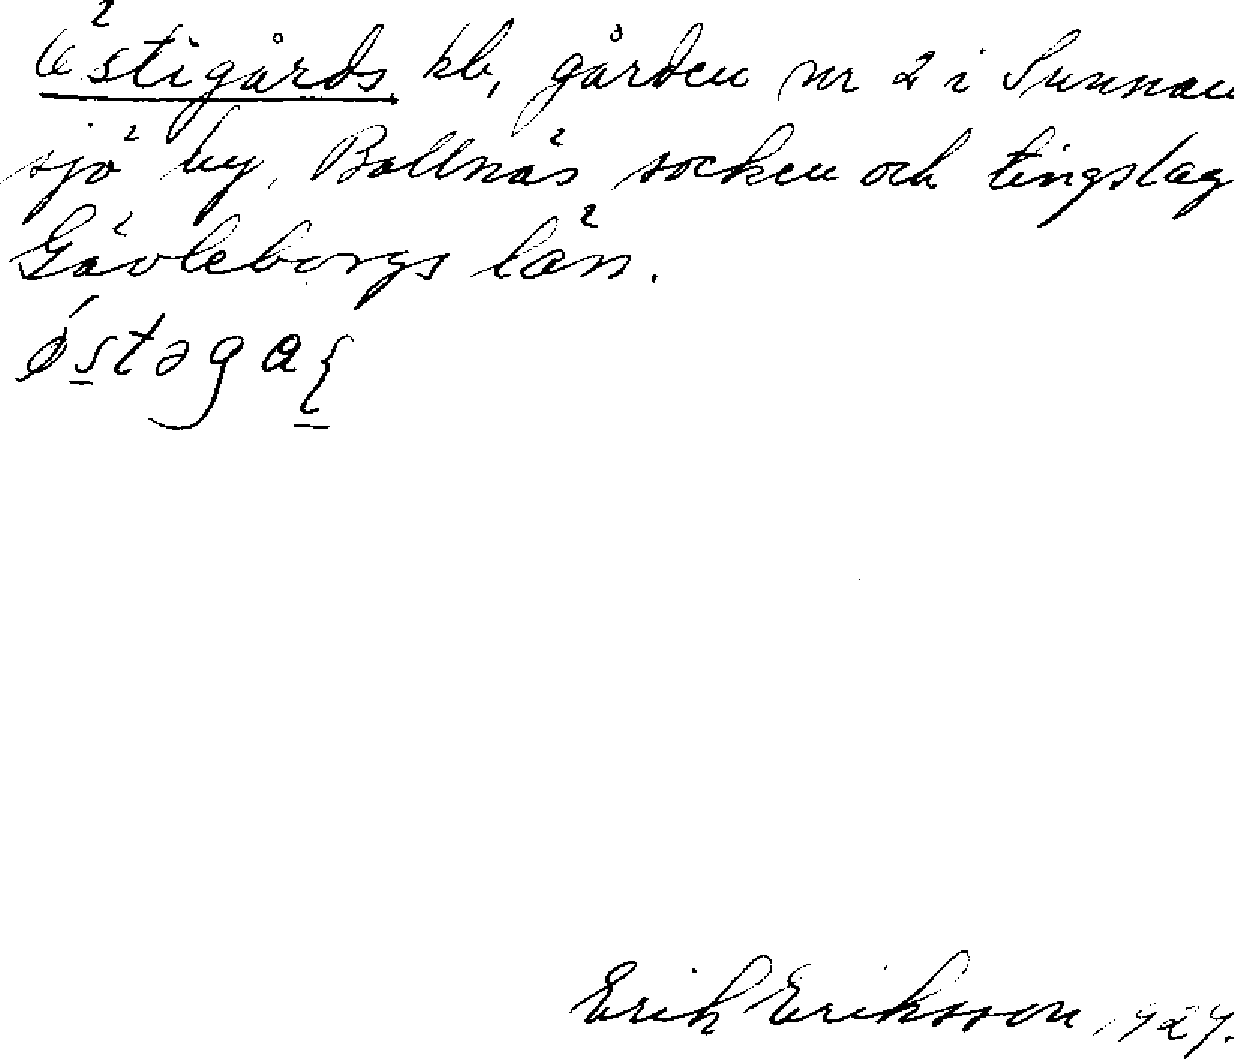 Östigårds hb, gården nr 2 i Sunnan
sjö by, Bollnäs socken och tingslag
Gävleborgs län.
Erik Eriksson 1927.